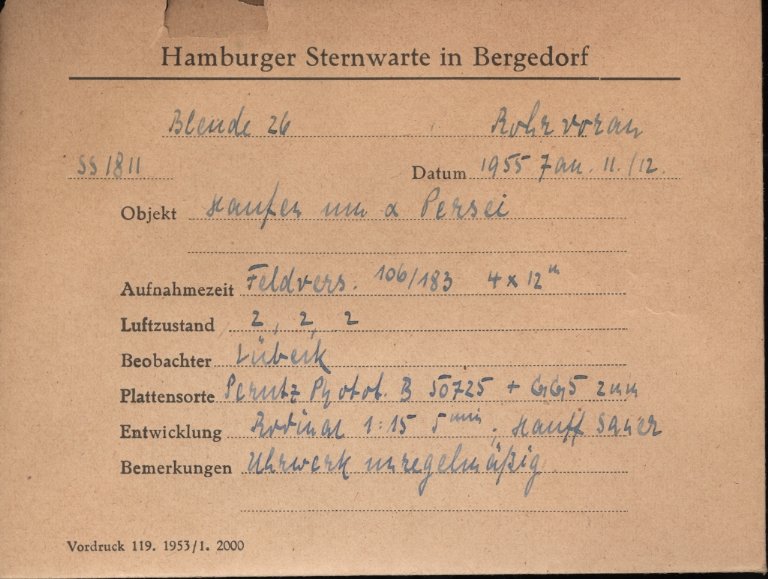 Hamburger Sternwarte in Bergedorf
Blende 26 Rohr voran
SS 1811 Datum 1955 Jan. 11./12.
Objekt Haufen um α Persei
Aufnahmezeit Feldvers. 106/183 4 x 12ᵐ
Luftzustand 2, 2, 2
Beobachter Lübeck
Plattensorte Perutz Photot. B 50725 + GG5 2mm
Entwicklung Rodinal 1:15 5 min, Hauff Sauer
Bemerkungen Uhrwerk unregelmäßig
Vordruck 119. 1953/1. 2000